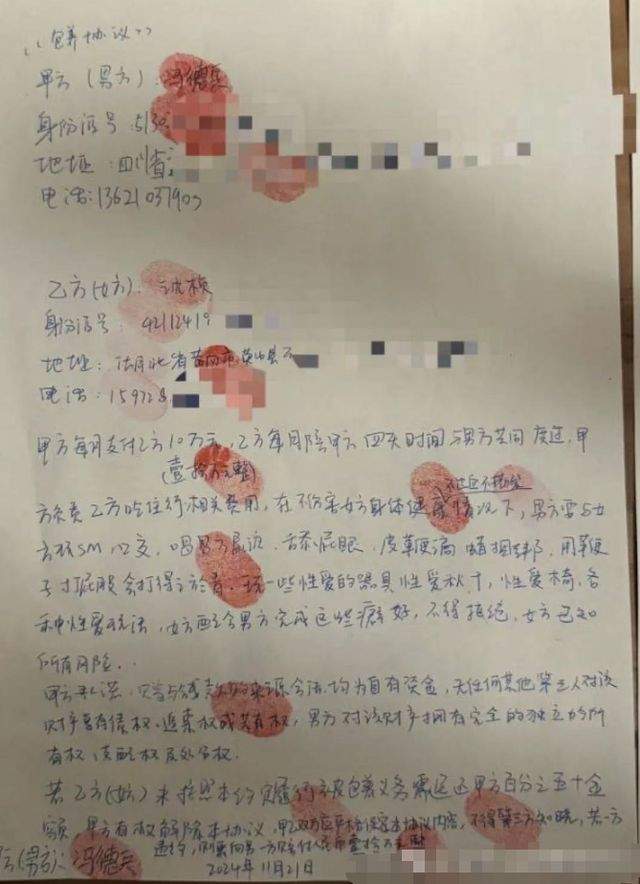 “包养协议”
甲方(男方):冯德兵
身份证号:5130
地址:四川省
电话:13621037909
乙方(女方):沈桢
身份证号:42112419
地址:湖北省黄冈市英山县
电话:159728
甲方每月支付乙方10万元,乙方每月陪甲方四天时间与男方共同度过,甲
(壹拾万元整)
方负责乙方吃住行相关费用,在不伤害女方身体健康情况下,男方要与女
方玩SM,口交,喝男方尿液,舔屁眼,皮鞭滴蜡捆绑,用鞭
子打屁股会打得,玩一些性爱的器具性爱秋千,性爱椅,各
种性爱玩法,女方配合男方完成这些癖好,不得拒绝,女方已知
所有风险..
甲方承诺,来源合法均为自有资金,无任何其他第三人对该
财产享有债权、追索权或共有权,男方对该财产拥有完全的独立的所
有权、支配权及处分权.
若乙方(女方)未按照本约定履行被包养义务需返还甲方百分之五十金
额 甲方有权解除本协议,甲乙双方应严格保密本协议内容,不得第三方知晓,若一方
违约,则要向另一方赔付人民币壹拾万元整
方(男方):冯德兵
2024年11月21日